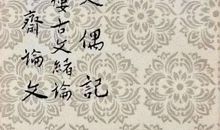 文偶記
樓古文緒論
齋論文